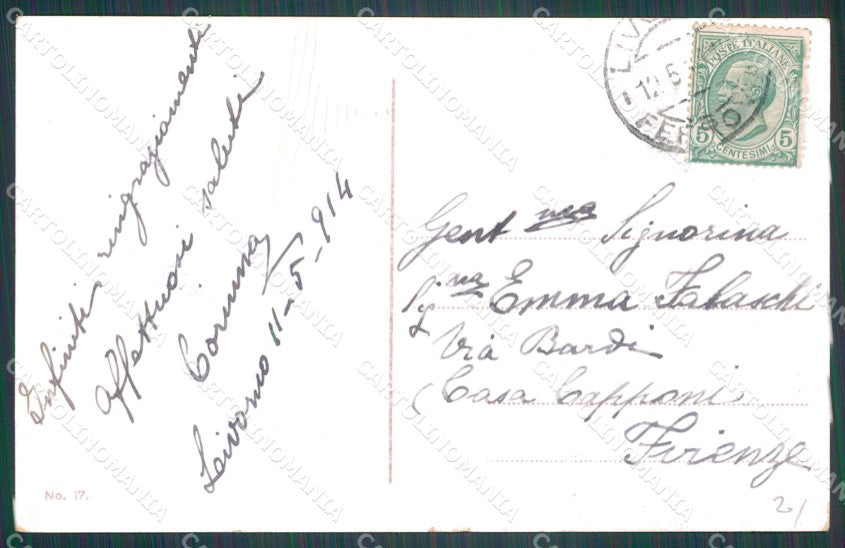 Infiniti ringraziamenti
Affettuosi saluti
Corinna
Livorno 11-5-914
No. 17.
POSTE ITALIANE
5 5
CENTESIMI
12.5
FERRO
Gent ma Signorina
Sig na Emma Falaschi
Via Bardi
Casa Capponi
Firenze
CARTOLINOMANIA